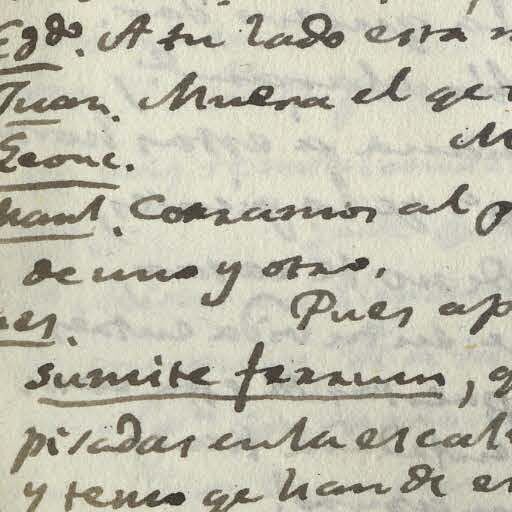 Egdo. A tu lado esta
Juan. Muera el qe
Leonc. M
Corramos al p
de uno y otro.
es. Pues ap
sumite ferrum, q
pisadas en la escal
y temo qe han de es